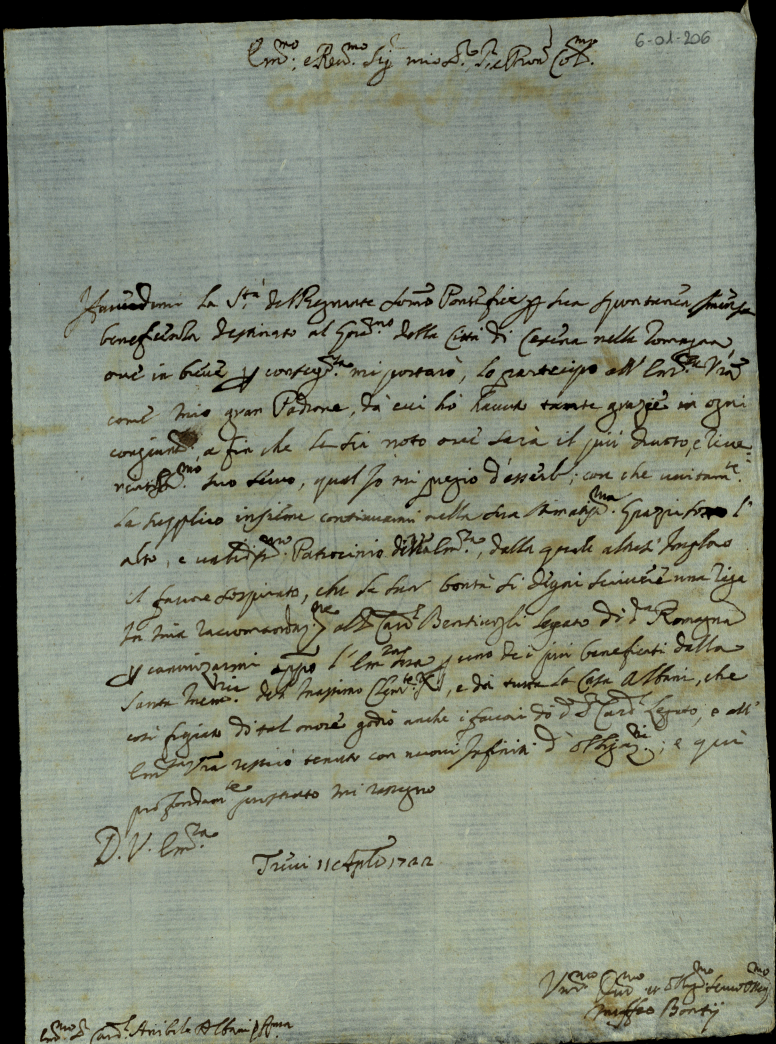 6-01-206
Em.mo e Rev.mo Sig.r mio Sig.r e Pron Col.mo
Havendomi la S.tà del Regnante Somo Pontefice p sua spontanea
beneficenza destinato al Gov.no della Città di Cesena nella Romagna
ove in breve mi portarò, lo partecipo all' Em.za Vra
come mio gran Padrone, da cui hò havute tante grazie in ogni
a fin che le sia noto ove sarà il più divoto, e rive=
rentiss.mo suo servo, qual Io mi pregio d'essere; con che unitam.te
la supplico insieme continuarmi nella sua stimatiss.ma Grazia l'
alto, e validiss.mo Patrocinio dell'Em.za, dalla quale altresì Imploro
il favore sospirato, che da sua bontà si degni scrivere una riga
in mia raccomandaz.ne al Card. Bentivogli legato di d.a Romagna
p appo l'Em.za sua p uno de i più beneficati dalla
Santa Mem.ria del Massimo Clem.te XI, e da tutta la Casa Albani, che
così fregiato di tal onore godrò anche i favori di d.o Card. Legato, e all'
Em.za Vra resterò tenuto con nuovi Infiniti d'obligaz.ni; e quì
profondam.te prostrato mi rassegno
D. V. Em.za
Trevi 11 Aple 1722
Um.mo Dev.mo et Obl.mo Servo
Maffeo Bontij
Em.mo S. Card. Anibale Albani